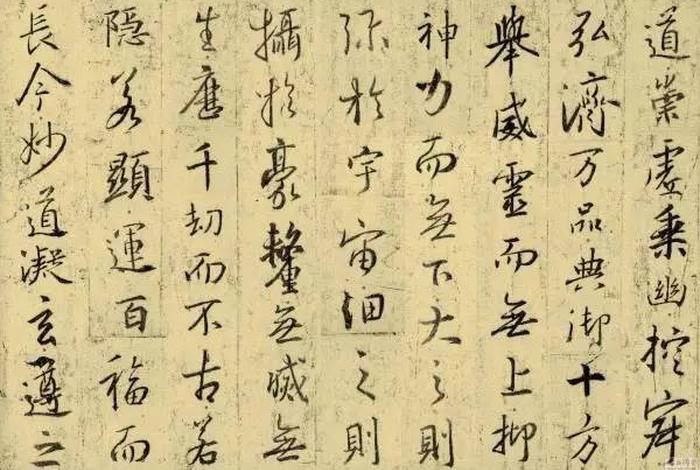 道崇虚乗幽控寂
弘濟万品典御十方
舉威靈而無上抑
神力而無下大之則
弥於宇宙細之則
攝於豪釐無滅無
生歷千劫而不古若
隐若顯運百福而
長今妙道凝玄遵之